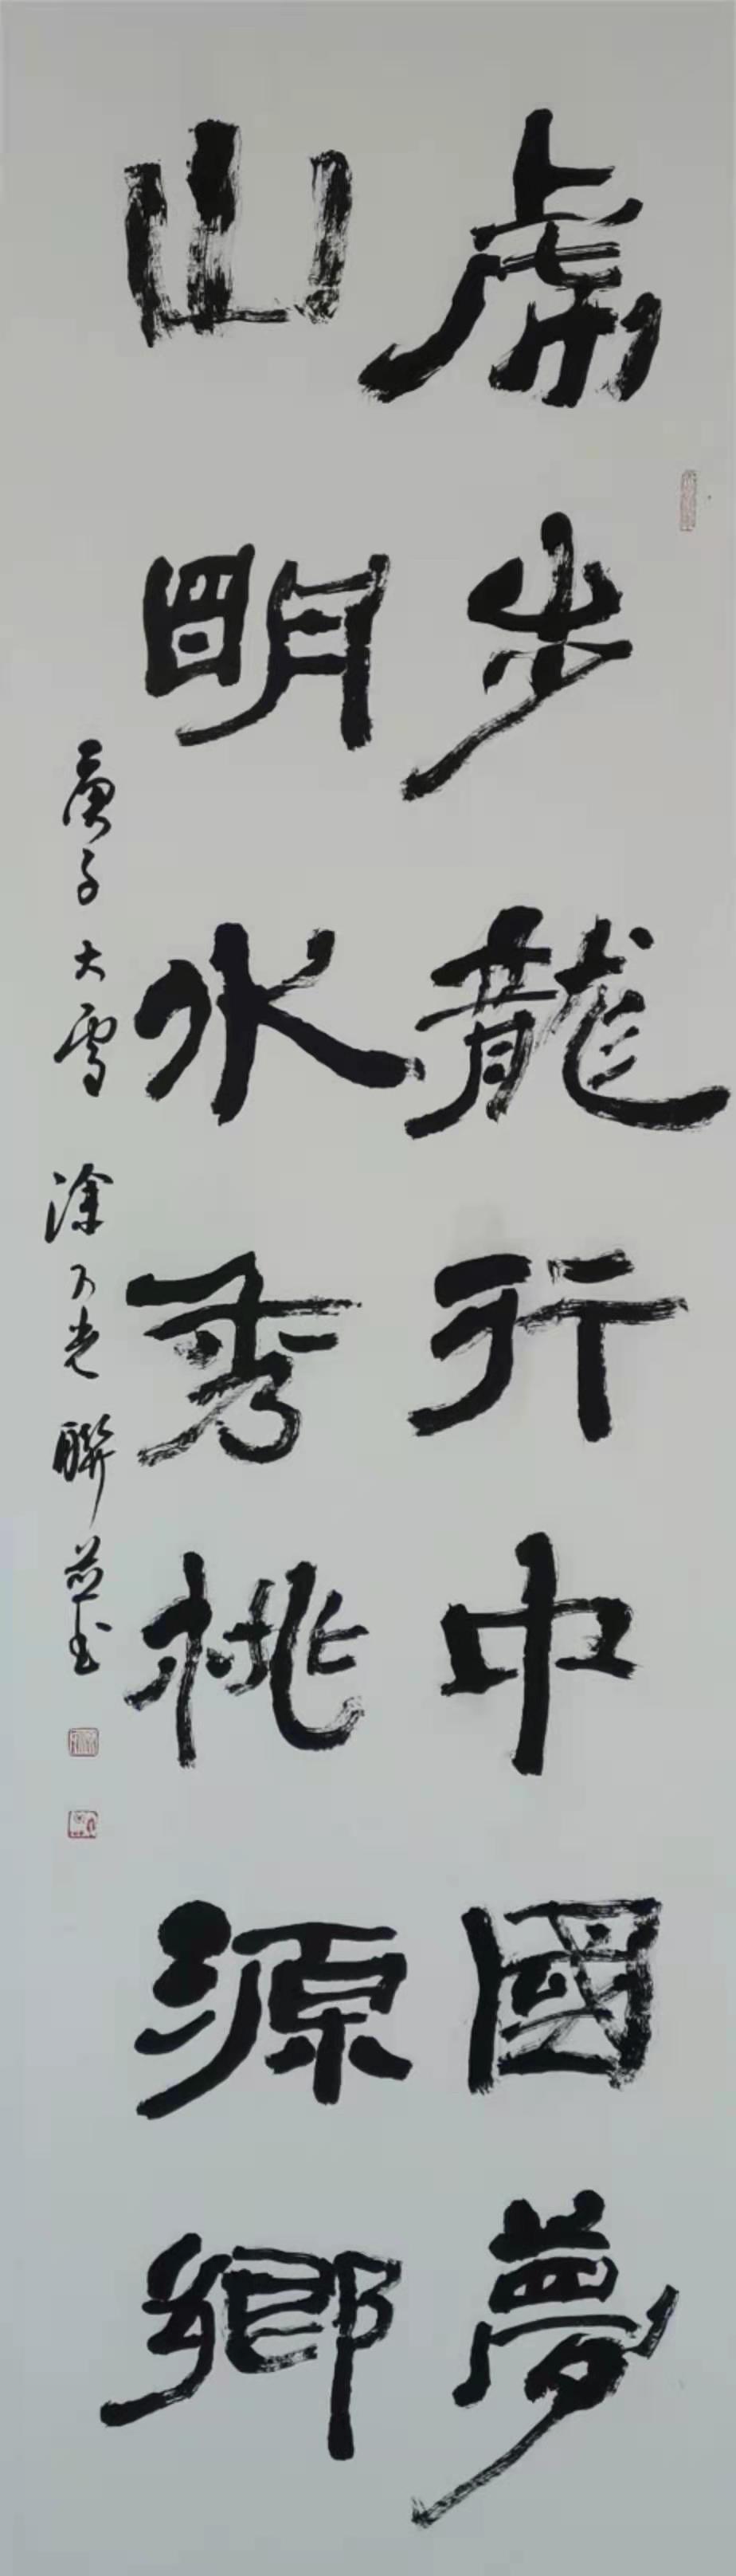 虎步龍行中國夢
山明水秀桃源鄉
庚子大雪 涂乃光聯並书